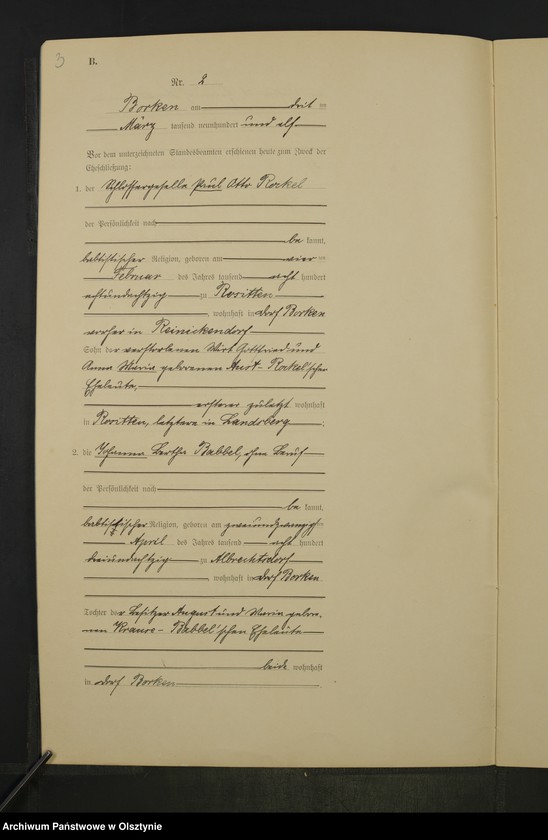 3
B.
Nr. 2
Borken am drit ten
März tausend neunhundert und elf
Vor dem unterzeichneten Standesbeamten erschienen heute zum Zweck der
Eheschließung:
1. der Schlossergeselle Paul Otto Rockel
der Persönlichkeit nach
be kannt,
babtistischer Religion, geboren am vier ten
Februar des Jahres tausend acht hundert
achtundachtzig zu Rositten
, wohnhaft in Dorf Borken
vorher in Reinickendorf
Sohn der verstorbenen Wirt Gottfried und
Anna Maria geborenen Aust- Rockel'schen
Eheleute,
ersterer zuletzt wohnhaft
in Rositten, letztere in Landsberg ;
2. die Johanna Bertha Babbel, ohne Beruf
der Persönlichkeit nach
be kannt,
babtistischer Religion, geboren am zweiundzwanzigsten
April des Jahres tausend acht hundert
dreiundachtzig zu Albrechtsdorf
, wohnhaft in Dorf Borken
Tochter der Besitzer August und Maria gebore-
nen Krause- Babbel'schen Eheleute
beide wohnhaft
in Dorf Borken .
Archiwum Państwowe w Olsztynie